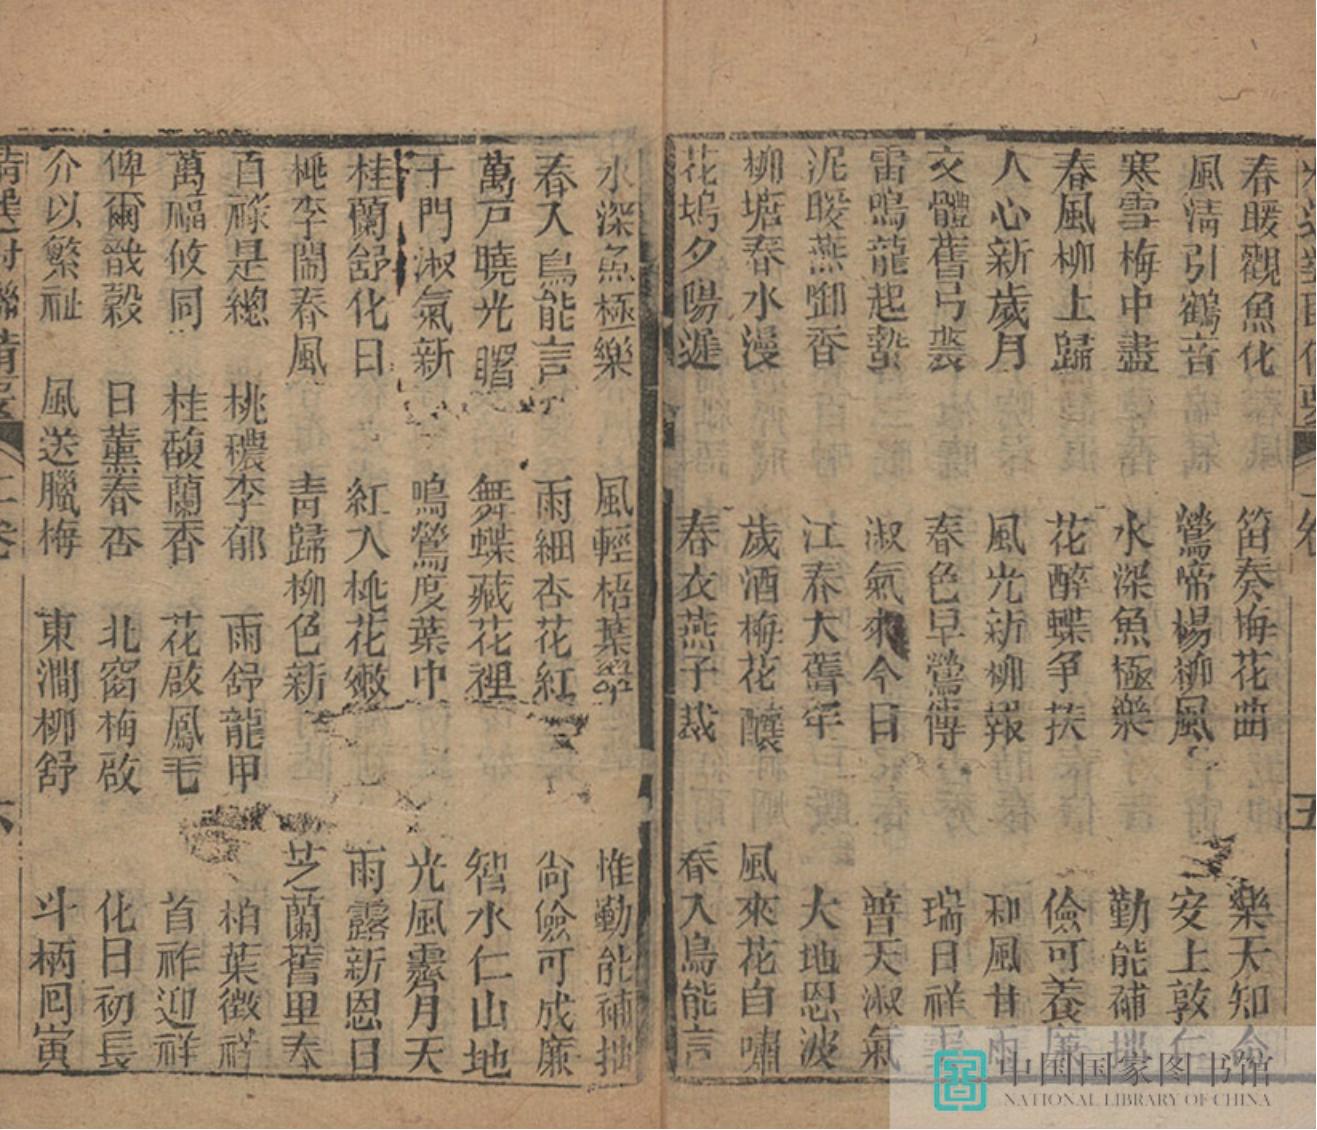 春暖觀魚化 笛奏梅花曲 樂天知命
風淸引鶴音 鶯啼楊柳風 安上敦仁
寒雪梅中盡 水深魚極樂 勤能補拙
春風柳上歸 花醉蝶爭扶 儉可養廉
人心新歲月 風光新柳報 和風甘雨
文體舊弓裘 春色早鶯傳 瑞日祥雲
雷鳴龍起蟄 淑氣來今日 普天淑氣
泥暖燕啣香 江春大舊年 大地恩波
柳塘春水漫 歲酒梅花釀 風來花自嘯
花塢夕陽遲 春衣燕子裁 春入鳥能言
五
水深魚極樂 風輕梧葉 惟勤能補拙
春入鳥能言 雨細杏花紅 尙儉可成廉
萬戸曉光曙 舞蝶藏花裡 智水仁山地
千門淑氣新 鳴鶯度葉中 光風霽月天
桂蘭舒化日 紅入桃花嫩 雨露新恩日
桃李鬧春風 靑歸柳色新 芝蘭舊里春
百祿是總 桃穠李郁 雨舒龍甲 柏葉徵祥
萬福攸同 桂馥蘭香 花啟鳳毛 首祚迎祥
俾爾戩穀 日薰春杏 北窗梅啟 化日初長
介以繁祉 風送臘梅 東澗柳舒 斗柄囘寅
對聯精 二卷 六
中国国家图书馆
NATIONAL LIBRARY OF CHINA